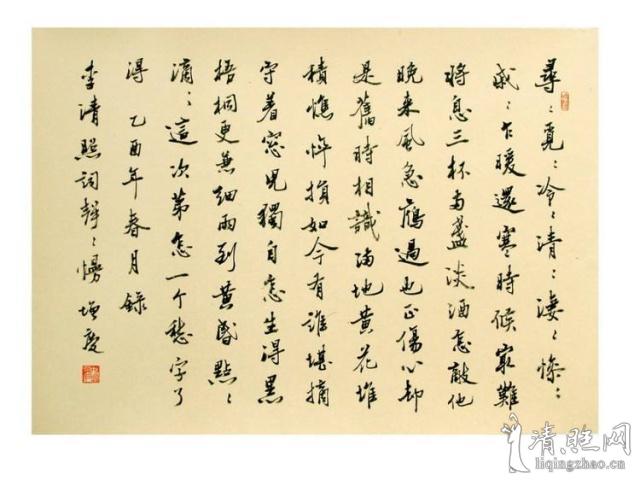 尋：覓：冷：清：淒：慘：
戚：乍暖還寒時候最難
將息三杯兩盞淡酒怎敵他
晚来風急鴈過也正傷心却
是舊時相識滿地黄花堆
積憔悴損如今有誰堪摘
守着窓児獨自怎生得黑
梧桐更兼細雨到黄昏點：
滴：這次第怎一个愁字了
得 乙酉年春月錄
李清照詞聲：慢 慶
清照网
liqingzhao.cn